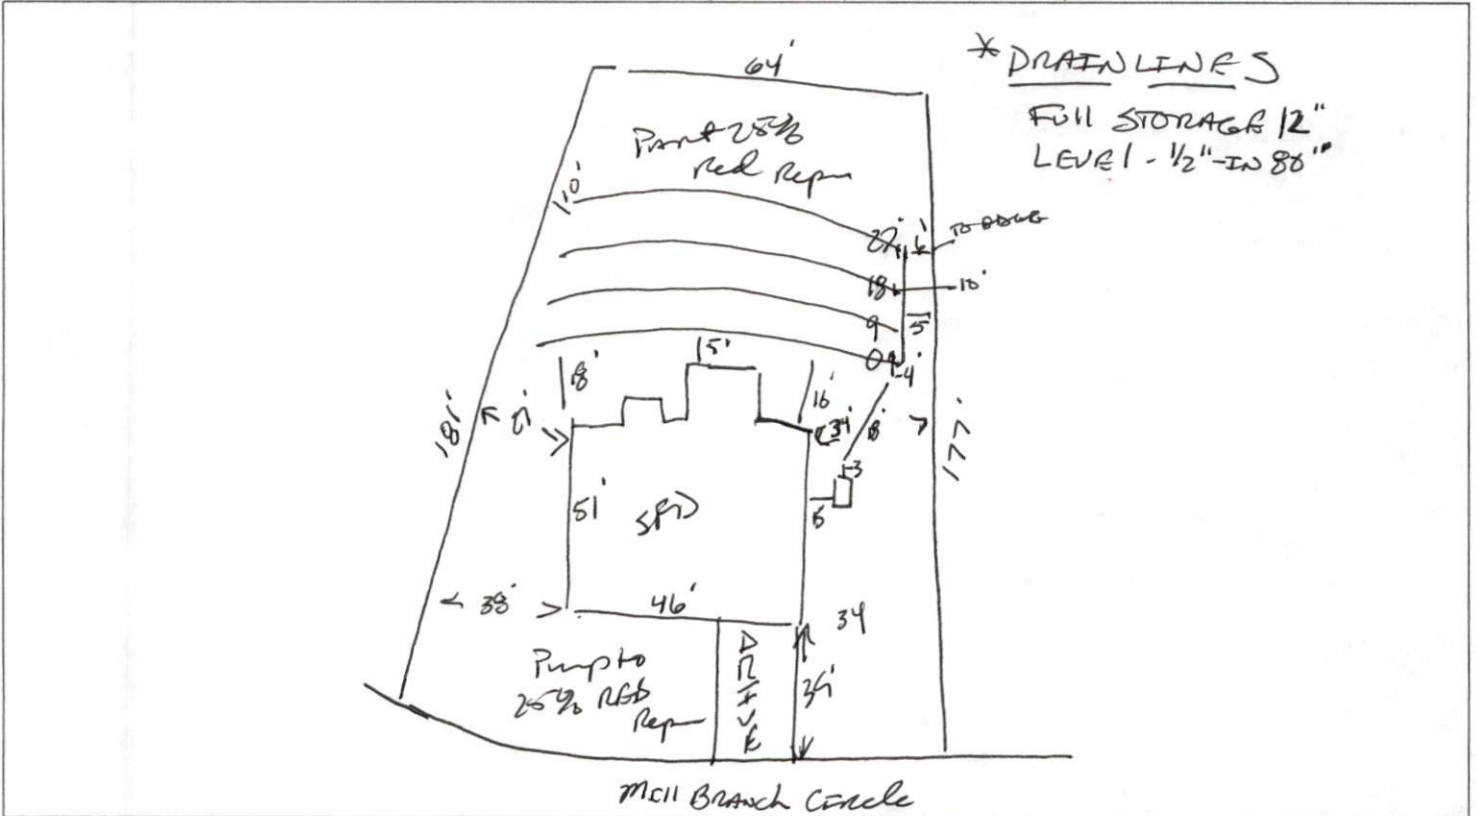 64'
* DRAINLINES
FUll STORAGE 12"
LEVEl - 1/2" - IN 80'
Part 25%
Red Repr
110'
27'
6'
TO EDGE
18
10'
9
5
0
4'
18'
15'
16'
34'
8'
3
181'
177'
51'
SFD
5
38'
46'
34
Pump to
25% RED
Repr
DRIVE
35'
Mill BRANCH CIRCLE